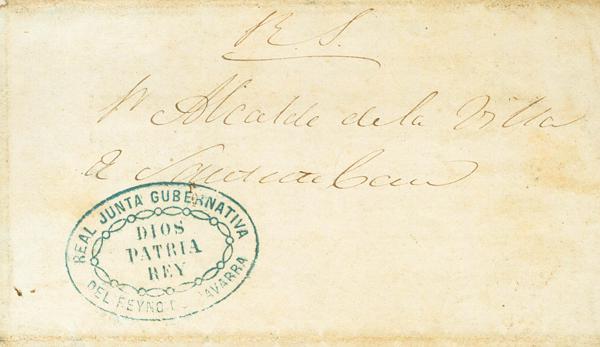 R. S.
Sr Alcalde de la Villa
de
REAL JUNTA GUBERNATIVA
DEL REYNO DE NAVARRA
DIOS
PATRIA
REY